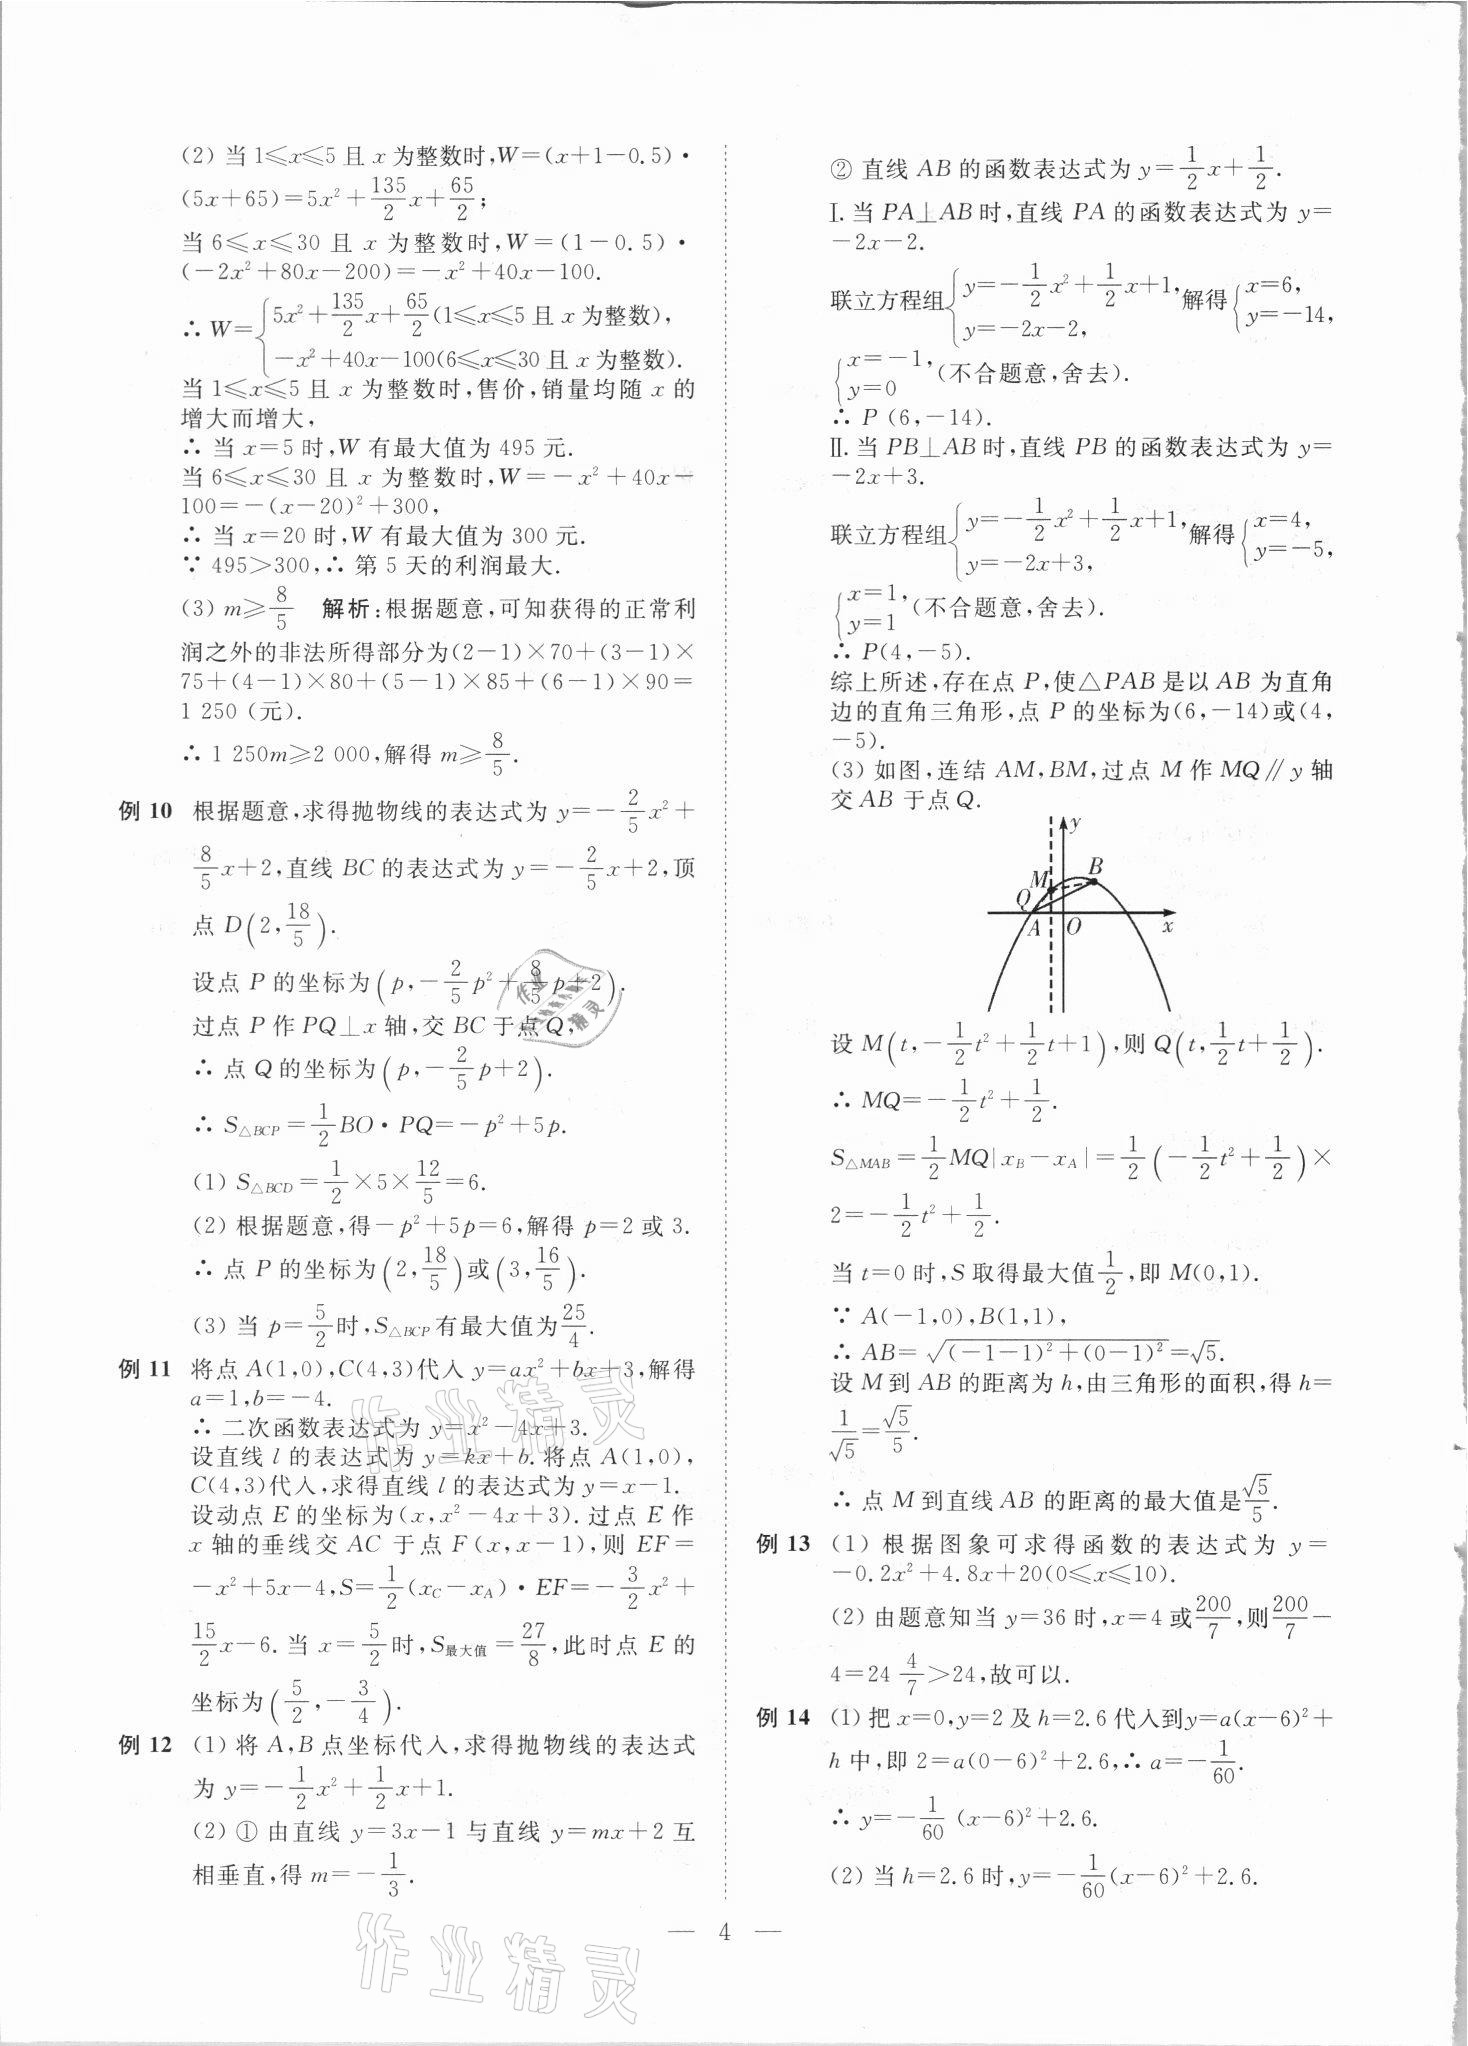 (2) 当1≤x≤5且x为整数时,W=(x+1-0.5)·
(5x+65)=5x²+135/2x+65/2;
当6≤x≤30且x为整数时,W=(1-0.5)·
(-2x²+80x-200)=-x²+40x-100.
∴ W={5x²+135/2x+65/2(1≤x≤5且x为整数),
-x²+40x-100(6≤x≤30且x为整数).
当1≤x≤5且x为整数时,售价,销量均随x的
增大而增大,
∴ 当x=5时,W有最大值为495元.
当6≤x≤30且x为整数时,W=-x²+40x-
100=-(x-20)²+300,
∴ 当x=20时,W有最大值为300元.
∵ 495>300,∴ 第5天的利润最大.
(3) m≥8/5 解析:根据题意,可知获得的正常利
润之外的非法所得部分为(2-1)×70+(3-1)×
75+(4-1)×80+(5-1)×85+(6-1)×90=
1 250 (元).
∴ 1 250m≥2 000,解得m≥8/5.
例10 根据题意,求得抛物线的表达式为y=-2/5x²+
8/5x+2,直线BC的表达式为y=-2/5x+2,顶
点D(2,18/5).
设点P的坐标为(p,-2/5p²+8/5p+2).
过点P作PQ⊥x轴,交BC于点Q,
∴ 点Q的坐标为(p,-2/5p+2).
∴ S△BCP=1/2BO·PQ=-p²+5p.
(1) S△BCD=1/2×5×12/5=6.
(2) 根据题意,得-p²+5p=6,解得p=2或3.
∴ 点P的坐标为(2,18/5)或(3,16/5).
(3) 当p=5/2时,S△BCP有最大值为25/4.
例11 将点A(1,0),C(4,3)代入y=ax²+bx+3,解得
a=1,b=-4.
∴ 二次函数表达式为y=x²-4x+3.
设直线l的表达式为y=kx+b.将点A(1,0),
C(4,3)代入,求得直线l的表达式为y=x-1.
设动点E的坐标为(x,x²-4x+3).过点E作
x轴的垂线交AC于点F(x,x-1),则EF=
-x²+5x-4,S=1/2(xC-xA)·EF=-3/2x²+
15/2x-6.当x=5/2时,S最大值=27/8,此时点E的
坐标为(5/2,-3/4).
例12 (1) 将A,B点坐标代入,求得抛物线的表达式
为y=-1/2x²+1/2x+1.
(2) ① 由直线y=3x-1与直线y=mx+2互
相垂直,得m=-1/3.
② 直线AB的函数表达式为y=1/2x+1/2.
Ⅰ.当PA⊥AB时,直线PA的函数表达式为y=
-2x-2.
联立方程组{y=-1/2x²+1/2x+1, y=-2x-2, 解得{x=6, y=-14,
{x=-1, y=0 (不合题意,舍去).
∴ P (6,-14).
Ⅱ.当PB⊥AB时,直线PB的函数表达式为y=
-2x+3.
联立方程组{y=-1/2x²+1/2x+1, y=-2x+3, 解得{x=4, y=-5,
{x=1, y=1 (不合题意,舍去).
∴ P(4,-5).
综上所述,存在点P,使△PAB是以AB为直角
边的直角三角形,点P的坐标为(6,-14)或(4,
-5).
(3) 如图,连结AM,BM,过点M作MQ∥y轴
交AB于点Q.
y
M B
Q
A O x
设M(t,-1/2t²+1/2t+1),则Q(t,1/2t+1/2).
∴ MQ=-1/2t²+1/2.
S△MAB=1/2MQ|xB-xA|=1/2(-1/2t²+1/2)×
2=-1/2t²+1/2.
当t=0时,S取得最大值1/2,即M(0,1).
∵ A(-1,0),B(1,1),
∴ AB=√((-1-1)²+(0-1)²)=√5.
设M到AB的距离为h,由三角形的面积,得h=
1/√5=√5/5.
∴ 点M到直线AB的距离的最大值是√5/5.
例13 (1) 根据图象可求得函数的表达式为y=
-0.2x²+4.8x+20(0≤x≤10).
(2) 由题意知当y=36时,x=4或200/7,则200/7-
4=24 4/7>24,故可以.
例14 (1) 把x=0,y=2及h=2.6代入到y=a(x-6)²+
h中,即2=a(0-6)²+2.6,∴ a=-1/60.
∴ y=-1/60 (x-6)²+2.6.
(2) 当h=2.6时,y=-1/60(x-6)²+2.6.
— 4 —
作业精灵
作业精灵
作业精灵